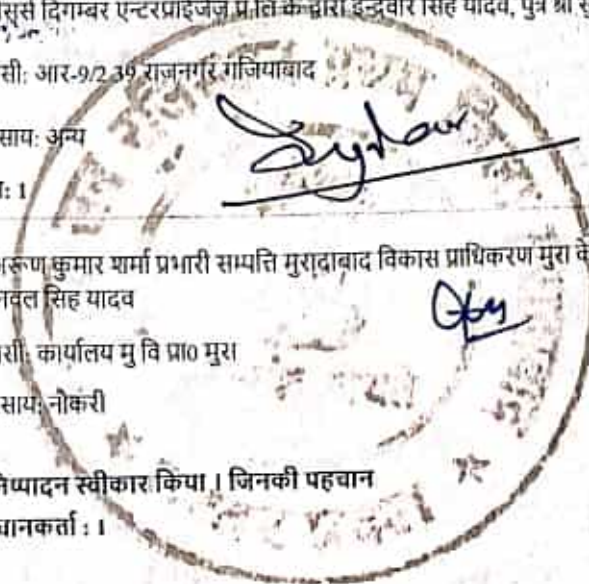 दिगम्बर एन्टरप्राईजेज प्रा लि के द्वारा इन्द्रवीर सिंह यादव, पुत्र श्री
सी: आर-9/2 39 राजनगर गजियाबाद
साय: अन्य
: 1
अरूण कुमार शर्मा प्रभारी सम्पत्ति मुरादाबाद विकास प्राधिकरण मुरा के
नवल सिह यादव
सी: कार्यालय मु वि प्रा0 मुरा
साय: नोकरी
निष्पादन स्वीकार किया । जिनकी पहचान
चानकर्ता : 1